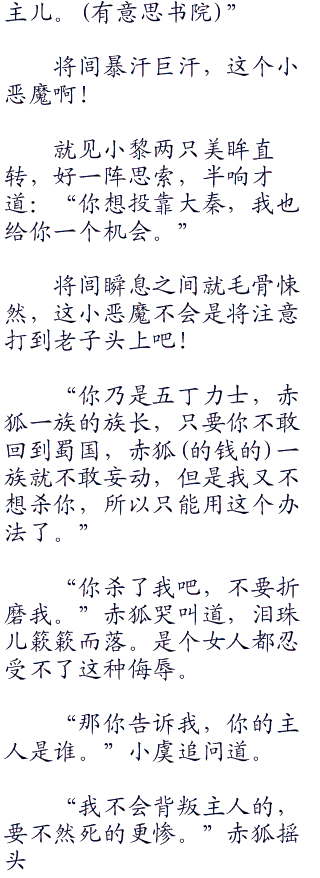 主儿。(有意思书院)”
将闾暴汗巨汗，这个小
恶魔啊！
就见小黎两只美眸直
转，好一阵思索，半响才
道：“你想投靠大秦，我也
给你一个机会。”
将闾瞬息之间就毛骨悚
然，这小恶魔不会是将注意
打到老子头上吧！
“你乃是五丁力士，赤
狐一族的族长，只要你不敢
回到蜀国，赤狐(的钱的)一
族就不敢妄动，但是我又不
想杀你，所以只能用这个办
法了。”
“你杀了我吧，不要折
磨我。”赤狐哭叫道，泪珠
儿簌簌而落。是个女人都忍
受不了这种侮辱。
“那你告诉我，你的主
人是谁。”小虞追问道。
“我不会背叛主人的，
要不然死的更惨。”赤狐摇
头